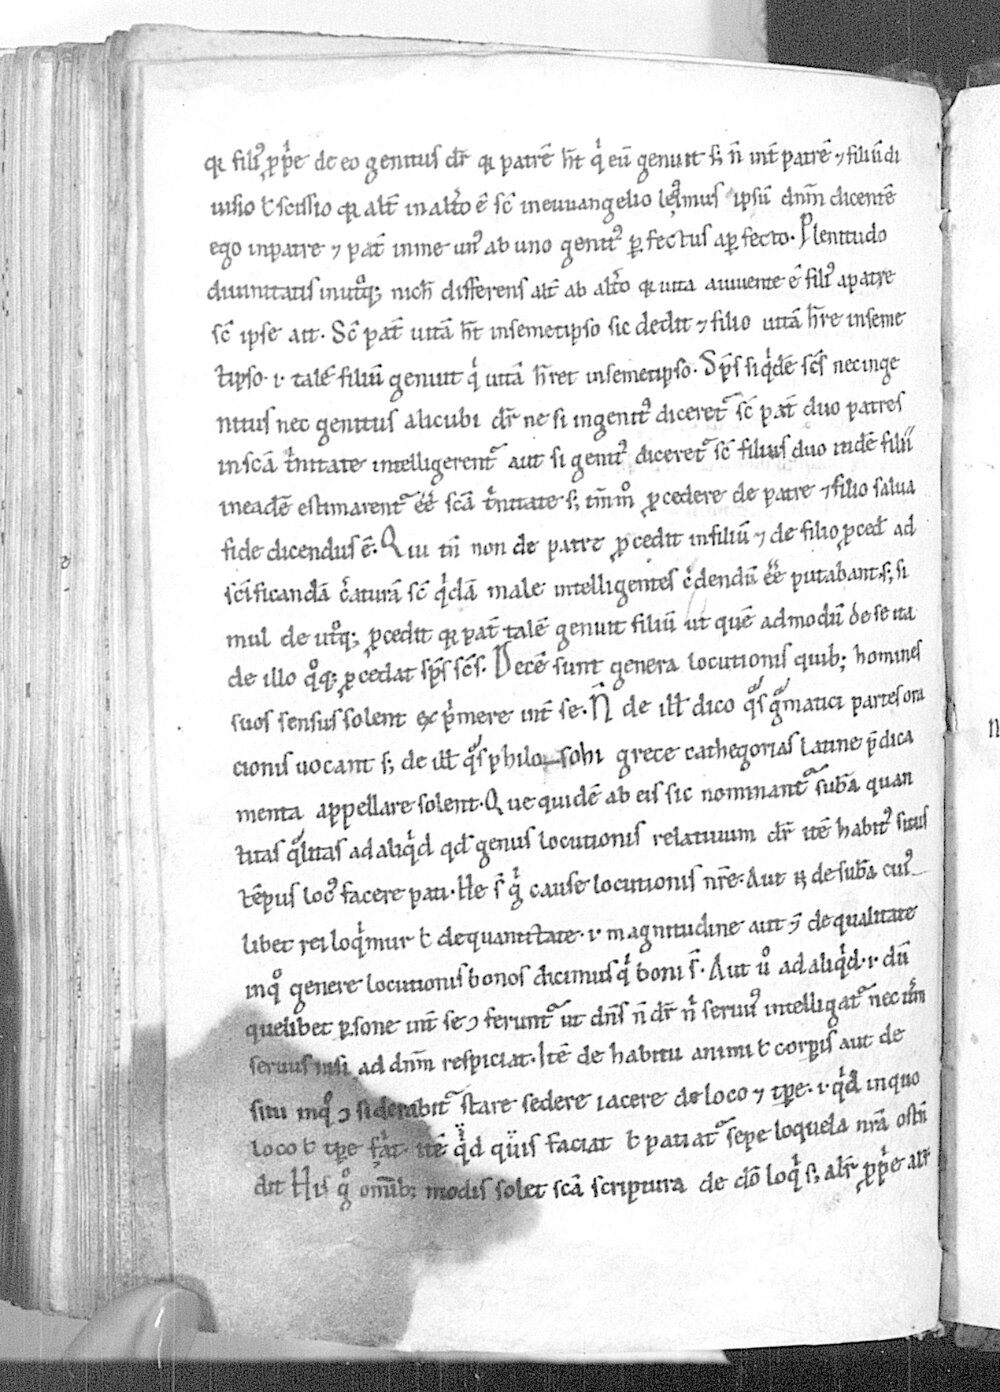 qr filiꝰ ꝓp̍e de eo genitus dr̄ qr patrē ht̄ q̍ eū genuit s; n̄ int̄ patrē ⁊ filiū di
uisio ł scissio qr alt̄ in alt̍o ē sc̄ in euuangelio leg̍imus ipsū dnm̄ dicentē
ego in patre ⁊ pat̄ in me unꝰ ab uno genitꝰ ꝑfectus a ꝑfecto. Plenitudo
diuinitatis in utroq; nich̄ differens alt̄ ab alt̍o qr uita a uiuente ē filiꝰ a patre
sc̄ ipse ait. Sc̄ pat̄ uitā ht̄ in semetipso sic dedit ⁊ filio uitā hr̄e in seme
tipso .i. talē filiū genuit q̍ uitā hr̄et in semetipso. Sp̄s siq̍dē sc̄s nec inge
nitus nec genitus alicubi dr̄ ne si ingenitꝰ diceret᷑ sc̄ pat̄ duo patres
in scā t̍nitate intelligerent᷑ aut si genitꝰ diceret᷑ sc̄ filius duo itidē filii
in eadē estimarent᷑ ēē scā t̍nitate s; tm̄mͦ ꝓcedere de patre ⁊ filio salua
fide dicendus ē. Qui tn̄ non de patre ꝓcedit in filiū ⁊ de filio ꝓced̄ ad
sc̄ificandā c̍aturā sc̄ q̍dā male intelligentes c̍dendū ēē putabant. s; si
mul de utͦq; ꝓcedit qr pat̄ talē genuit filiū ut quē admodū de se ita
de illo qͦq; ꝓcedat sp̄s sc̄s. Decē sunt genera locutionis quib; homines
suos sensus solent exp̍mere int̄ se. N̄ de ill̄ dico qͣs gͣmatici partes ora
cionis uocant s; de ill̄ qͣs philosophi grece cathegorias latine p̄dica
menta appellare solent. Que quidē ab eis sic nominant᷑ sub̄a quan
titas qͣlitas ad aliq̍d qd̄ genus locutionis relatiuum dr̄ itē habitꝰ situs
tēpus locꝰ facere pati. He s̄ q̍ cause locutionis nr̄e. Aut de sub̄a cuiꝰ
libet rei loq̍mur ł de quantitate .i. magnitudine aut de qualitate
in qͦ genere locutionis bonos dicimus q̍ boni s̄. Aut uͦ ad aliq̍d .i. dū
quelibet ꝑsone int̄ se ꝯferunt᷑ ut dn̄s n̄ dr̄ n̍ seruꝰ intelligat᷑ nec
seruus nisi ad dnm̄ respiciat. Itē de habitu animi ł corpis aut de
situ in qͦ ꝯsiderabit᷑ stare sedere iacere de loco ⁊ tp̄e .i. q̍d in quo
loco ł tp̄e fiat. itē q̍d quis faciat ł patiat᷑ sepe loquela nrā ostn̄
dit His gͦ omīb; modis solet scā scriptura de dō loq̍ s; alr̄ ꝓp̍e alr̄